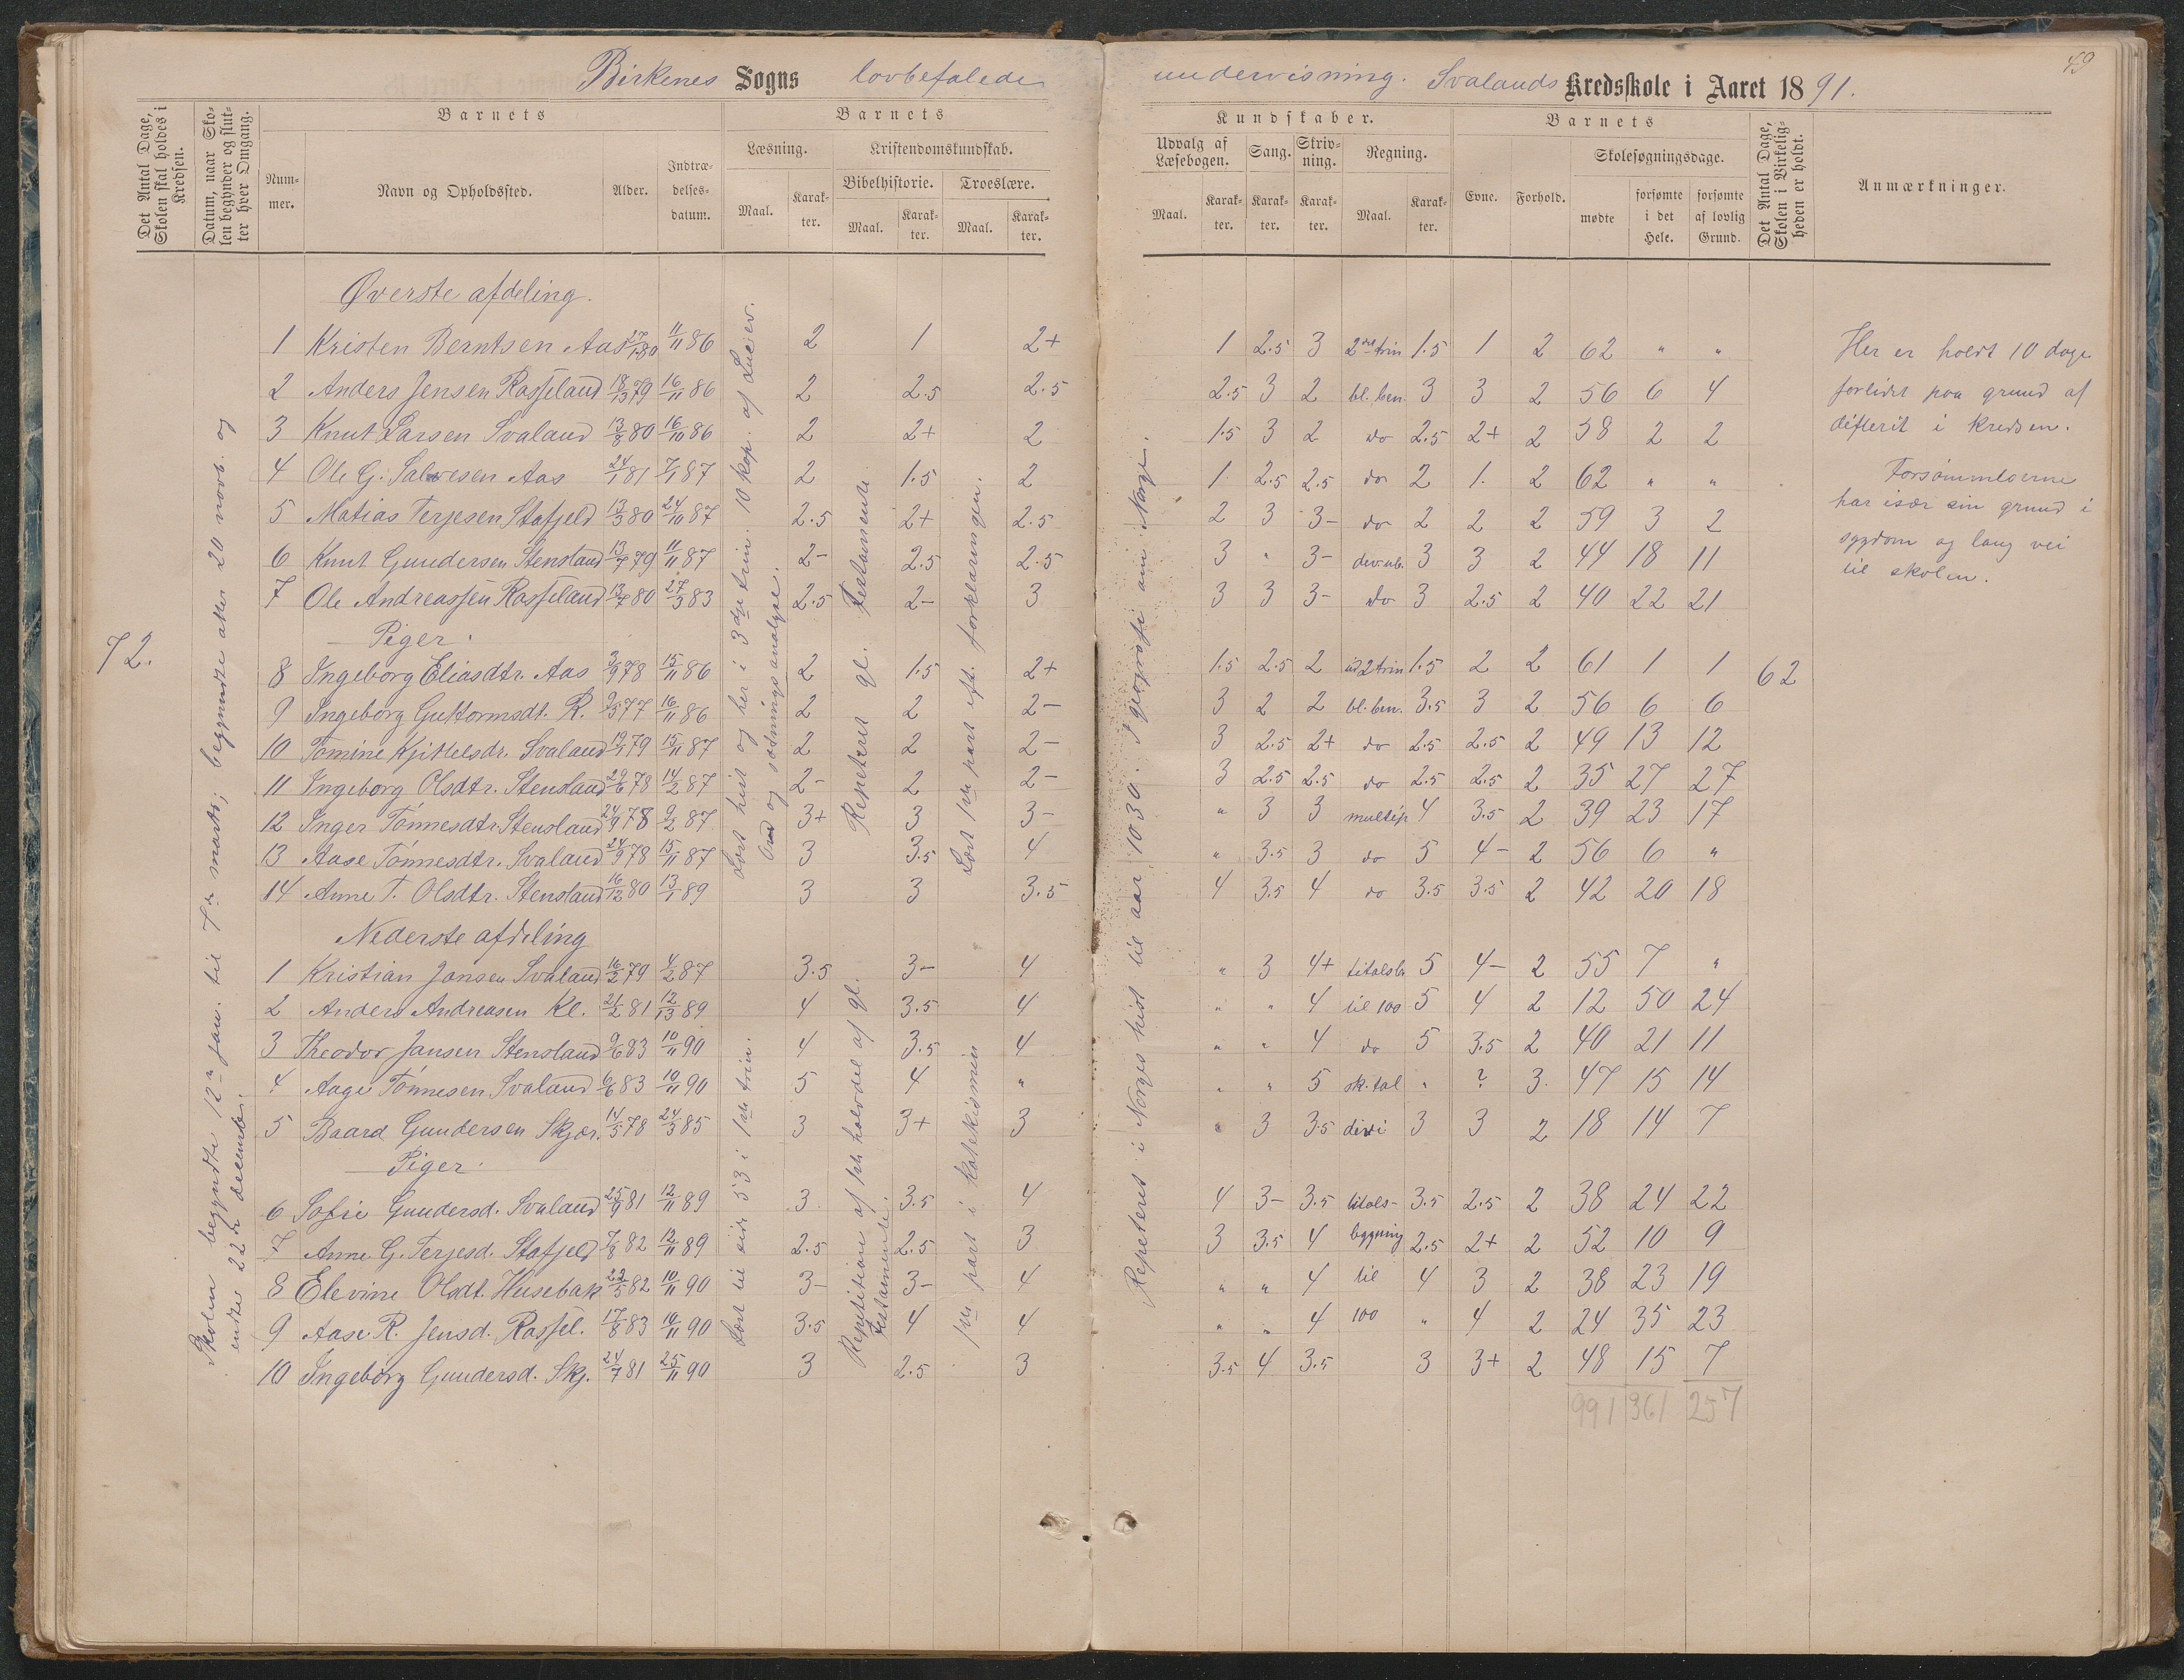 49
Birkenes Sogns lovbefalede undervisning. Svalands Kredsskole i Aaret 1891.
Det Antal Dage, Skolen skal holdes i Kredsen.
Datum, naar Skolen begynder og slutter hver Omgang.
Barnets
Nummer.
Navn og Opholdssted.
Alder.
Indtrædelsesdatum.
Barnets
Læsning.
Maal.
Karakter.
Kristendomskundskab.
Bibelhistorie.
Maal.
Karakter.
Troeslære.
Maal.
Karakter.
Kundskaber.
Udvalg af Læsebogen.
Maal.
Karakter.
Sang.
Karakter.
Skrivning.
Karakter.
Regning.
Maal.
Karakter.
Barnets
Evne.
Forhold.
Skolesøgningsdage.
mødte
forsømte i det Hele.
forsømte af lovlig Grund.
Det Antal Dage, Skolen i Virkeligheden er holdt.
Anmærkninger.
72.
Skolen begyndte 12te jan. til 7de marts; begyndte atter 20 novb. og
endte 22de december.
Øverste afdeling.
1 Kristen Berntsen Aas 27/1 80 11/11 86 2 1 2+ 1 2.5 3 2det trin 1.5 1 2 62 " "
2 Anders Jensen Rosseland 18/3 79 16/11 86 2 2.5 2.5 2.5 3 2 bl. ben. 3 3 2 56 6 4
3 Knut Larsen Svaland 13/8 80 16/10 86 2 2+ 2 1.5 3 2 do 2.5 2+ 2 58 2 2
4 Ole G. Salvesen Aas 24/1 81 7/1 87 2 1.5 2 1 2.5 2.5 do 2 1. 2 62 " "
5 Matias Terjesen Stafjeld 13/3 80 24/10 87 2.5 2+ 2.5 2 3 3- do 2 2 2 59 3 2
6 Knut Gundersen Stensland 13/7 79 11/11 87 2- 2.5 2.5 3 " 3- dev.ub. 3 3 2 44 18 11
7 Ole Andreassen Rosseland 13/7 80 27/3 83 2.5 2- 3 3 3 3- do 3 2.5 2 40 22 21
Piger.
8 Ingeborg Eliasdtr. Aas 3/9 78 15/11 86 2 1.5 2+ 1.5 2.5 2 ud 2 trin 1.5 2 2 61 1 1 62
9 Ingeborg Guttormsdt. R. 9/5 77 16/11 86 2 2 2- 3 2 2 bl. ben. 3.5 3 2 56 6 6
10 Tomine Kjittelsdr. Svaland 19/1 79 15/11 87 2 2 2- 3 2.5 2+ do 2.5 2.5 2 49 13 12
11 Ingeborg Olsdtr. Stensland 29/6 78 14/2 87 2- 2 2- 3 2.5 2.5 do 2.5 2.5 2 35 27 27
12 Inger Tönnesdtr. Stensland 24/9 78 9/2 87 3+ 3 3- " 3 3 multip 4 3.5 2 39 23 17
13 Aase Tönnesdtr. Svaland 24/9 78 15/11 87 3 3.5 4 " 3.5 3 do 5 4- 2 56 6 "
14 Anne T. Olsdtr. Stensland 16/12 80 13/1 89 3 3 3.5 4 3.5 4 do 3.5 3.5 2 42 20 18
Nederste afdeling
1 Kristian Jansen Svaland 16/2 79 4/2 87 3.5 3- 4 " 3 4+ titalsl. 5 4- 2 55 7 "
2 Anders Andreasen Kl. 21/2 81 12/13 89 4 3.5 4 " " 4 til 100 5 4 2 12 50 24
3 Theodor Jansen Stensland 9/6 83 10/11 90 4 3.5 4 " " 4 do 5 3.5 2 40 21 11
4 Aage Tönnesen Svaland 6/6 83 10/11 90 5 4 " " " 5 sk. tal " ? 3. 47 15 14
5 Baard Gundersen Skjær. 14/5 78 24/3 85 3 3+ 3 " 3 3.5 divi 3 3 2 18 14 7
Piger.
6 Sofie Gundersd. Svaland 25/9 81 12/11 89 3 3.5 4 4 3- 3.5 titals- 3.5 2.5 2 38 24 22
7 Anne G. Terjesd. Stafjeld 7/8 82 12/11 89 2.5 2.5 3 3 3.5 4 lægning 2.5 2+ 2 52 10 9
8 Elevine Olsdt. Husebak 22/5 82 10/11 90 3- 3- 4 " " 4 til 4 3 2 38 23 19
9 Aase R. Jensd. Rossel. 17/8 83 10/11 90 3.5 4 4 " " 4 100 " 4 2 24 35 23
10 Ingeborg Gundersd. Skj. 24/7 81 25/11 90 3 2.5 3 3.5 4 3.5 3 3+ 2 48 15 7
991 361 257
Læst hist og her i 3dje trin. 10 kap. af Luc. ev.
Ord og sætningsanalyse.
Repeteret gl. Testamente
Læst 1ste part eft. forklaringen.
Læst til side 53 i 1ste trin.
Repetition af 1ste halvdel af gl.
Testamente.
1ste part i Katekismen
Repeteret i Norges hist til aar 1030. I geografi om Norge.
Her er holdt 10 dage
forlidet paa grund af
difterit i kredsen.
Forsömmelserne
har især sin grund i
sygdom og lang vei
til skolen.